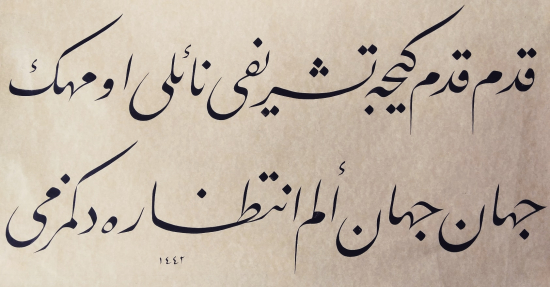 قدم قدم کیجه تشریفی نائلی او مهك
جهان جهان ألم انتظاره دکمزمی
١٤٤٢